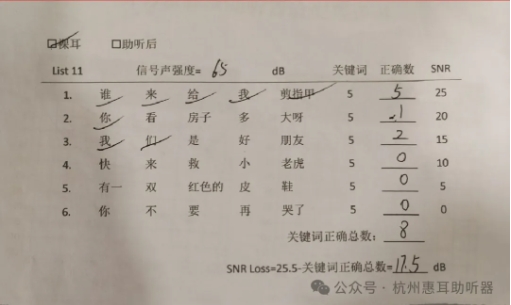 ☑裸耳 □助听后
List 11 信号声强度= 65 dB 关键词 正确数 SNR
1. 谁 来 给 我 剪指甲 5 5 25
2. 你 看 房子 多 大呀 5 1 20
3. 我 们 是 好 朋友 5 2 15
4. 快 来 救 小 老虎 5 0 10
5. 有一 双 红色的 皮 鞋 5 0 5
6. 你 不 要 再 哭了 5 0 0
关键词正确总数: 8
SNR Loss=25.5-关键词正确总数=17.5 dB
公众号·杭州惠耳助听器